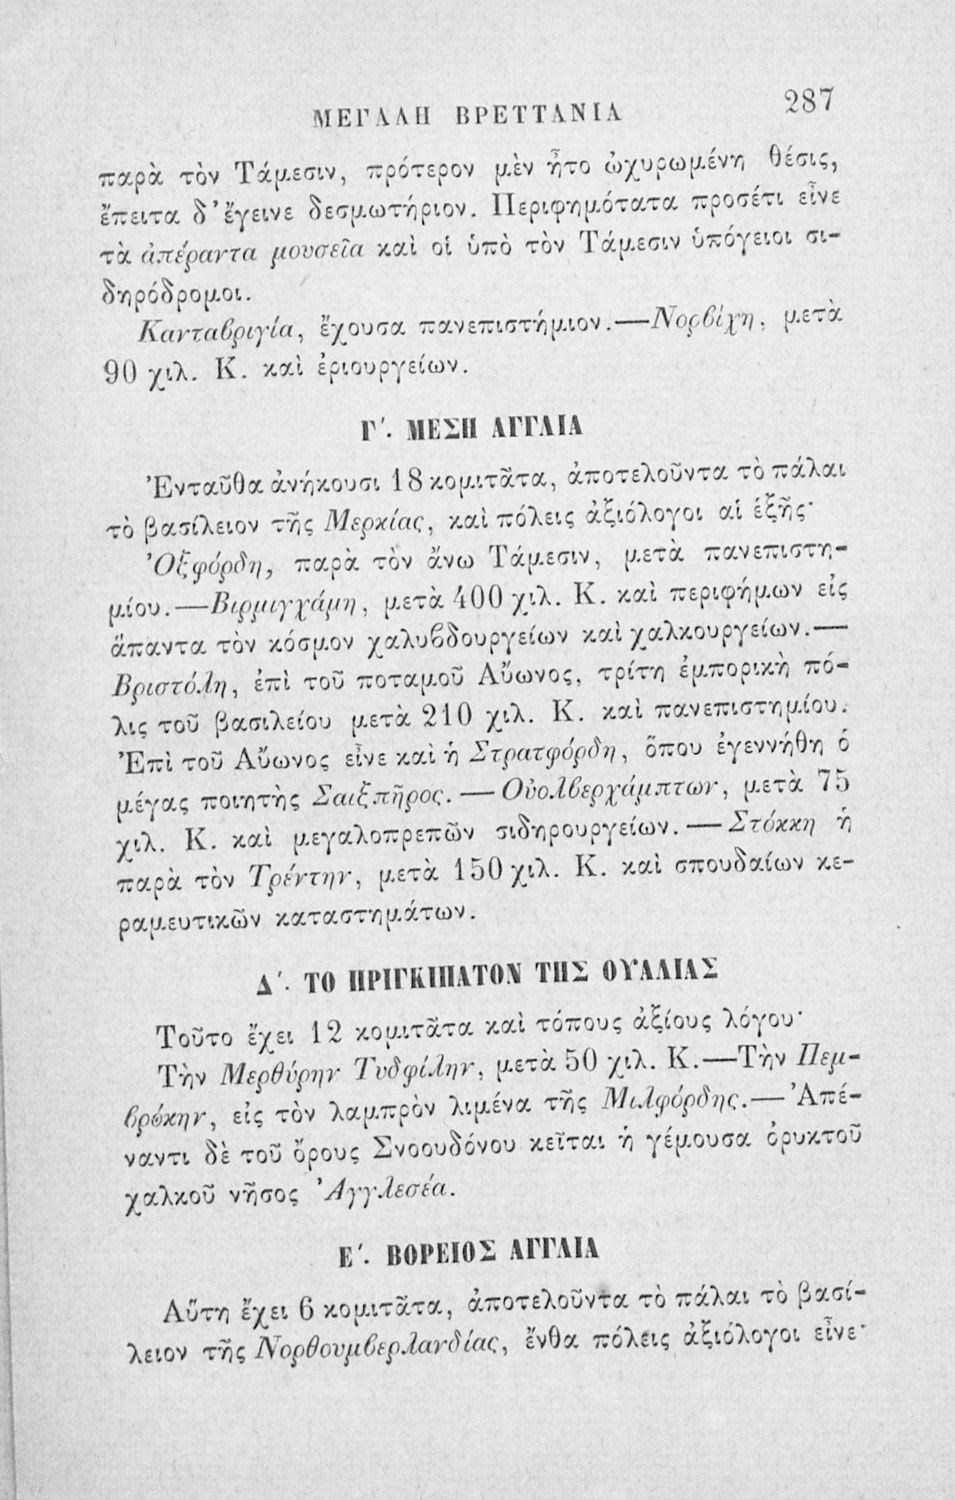 ΜΕΓΑΛΗ ΒΡΕΤΤΑΝΙΑ 287
παρὰ τὸν Τάμεσιν, πρότερον μὲν ἦτο ὠχυρωμένη θέσις,
ἔπειτα δ' ἔγεινε δεσμωτήριον. Περιφημότατα προσέτι εἶνε
τὰ ἀπέραντα μουσεῖα καὶ οἱ ὑπὸ τὸν Τάμεσιν ὑπόγειοι σι-
δηρόδρομοι.
Κανταβριγία, ἔχουσα πανεπιστήμιον.—Νορβίχη, μετὰ
90 χιλ. Κ. καὶ ἐριουργείων.
Γ'. ΜΕΣΗ ΑΓΓΛΙΑ
Ἐνταῦθα ἀνήκουσι 18 κομιτᾶτα, ἀποτελοῦντα τὸ πάλαι
τὸ βασίλειον τῆς Μερκίας, καὶ πόλεις ἀξιόλογοι αἱ ἑξῆς·
Ὀξφόρδη, παρὰ τὸν ἄνω Τάμεσιν, μετὰ πανεπιστη-
μίου.—Βιρμιγχάμη, μετὰ 400 χιλ. Κ. καὶ περιφήμων εἰς
ἅπαντα τὸν κόσμον χαλυβδουργείων καὶ χαλκουργείων.—
Βριστόλη, ἐπὶ τοῦ ποταμοῦ Αὔωνος, τρίτη ἐμπορικὴ πό-
λις τοῦ βασιλείου μετὰ 210 χιλ. Κ. καὶ πανεπιστημίου.
Ἐπὶ τοῦ Αὔωνος εἶνε καὶ ἡ Στρατφόρδη, ὅπου ἐγεννήθη ὁ
μέγας ποιητὴς Σαιξπῆρος.—Οὐολβερχάμπτων, μετὰ 75
χιλ. Κ. καὶ μεγαλοπρεπῶν σιδηρουργείων.—Στόκκη ἡ
παρὰ τὸν Τρέντην, μετὰ 150 χιλ. Κ. καὶ σπουδαίων κε-
ραμευτικῶν καταστημάτων.
Δ'. ΤΟ ΠΡΙΓΚΙΠΑΤΟΝ ΤΗΣ ΟΥΑΛΙΑΣ
Τοῦτο ἔχει 12 κομιτᾶτα καὶ τόπους ἀξίους λόγου·
Τὴν Μερθύρην Τυδφίλην, μετὰ 50 χιλ. Κ.—Τὴν Πεμ-
βρόκην, εἰς τὸν λαμπρὸν λιμένα τῆς Μιλφόρδης.—Ἀπέ-
ναντι δὲ τοῦ ὄρους Σνοουδόνου κεῖται ἡ γέμουσα ὀρυκτοῦ
χαλκοῦ νῆσος Ἀγγλεσέα.
Ε'. ΒΟΡΕΙΟΣ ΑΓΓΛΙΑ
Αὕτη ἔχει 6 κομιτᾶτα, ἀποτελοῦντα τὸ πάλαι τὸ βασί-
λειον τῆς Νορθουμβερλανδίας, ἔνθα πόλεις ἀξιόλογοι εἶνε·